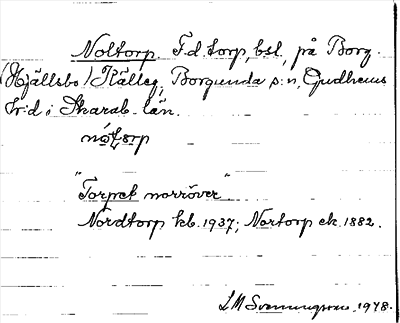 Noltorp F.d. torp, bsl., på Borg.
(Hjällsbo) Källeg, Borgunda s:n, Gudhems
hr:d i Skarab. län.
"Torpet norröver"
Nordtorp kb. 1937; Nortorp ek. 1882.
LM Svenungsson, 1978.